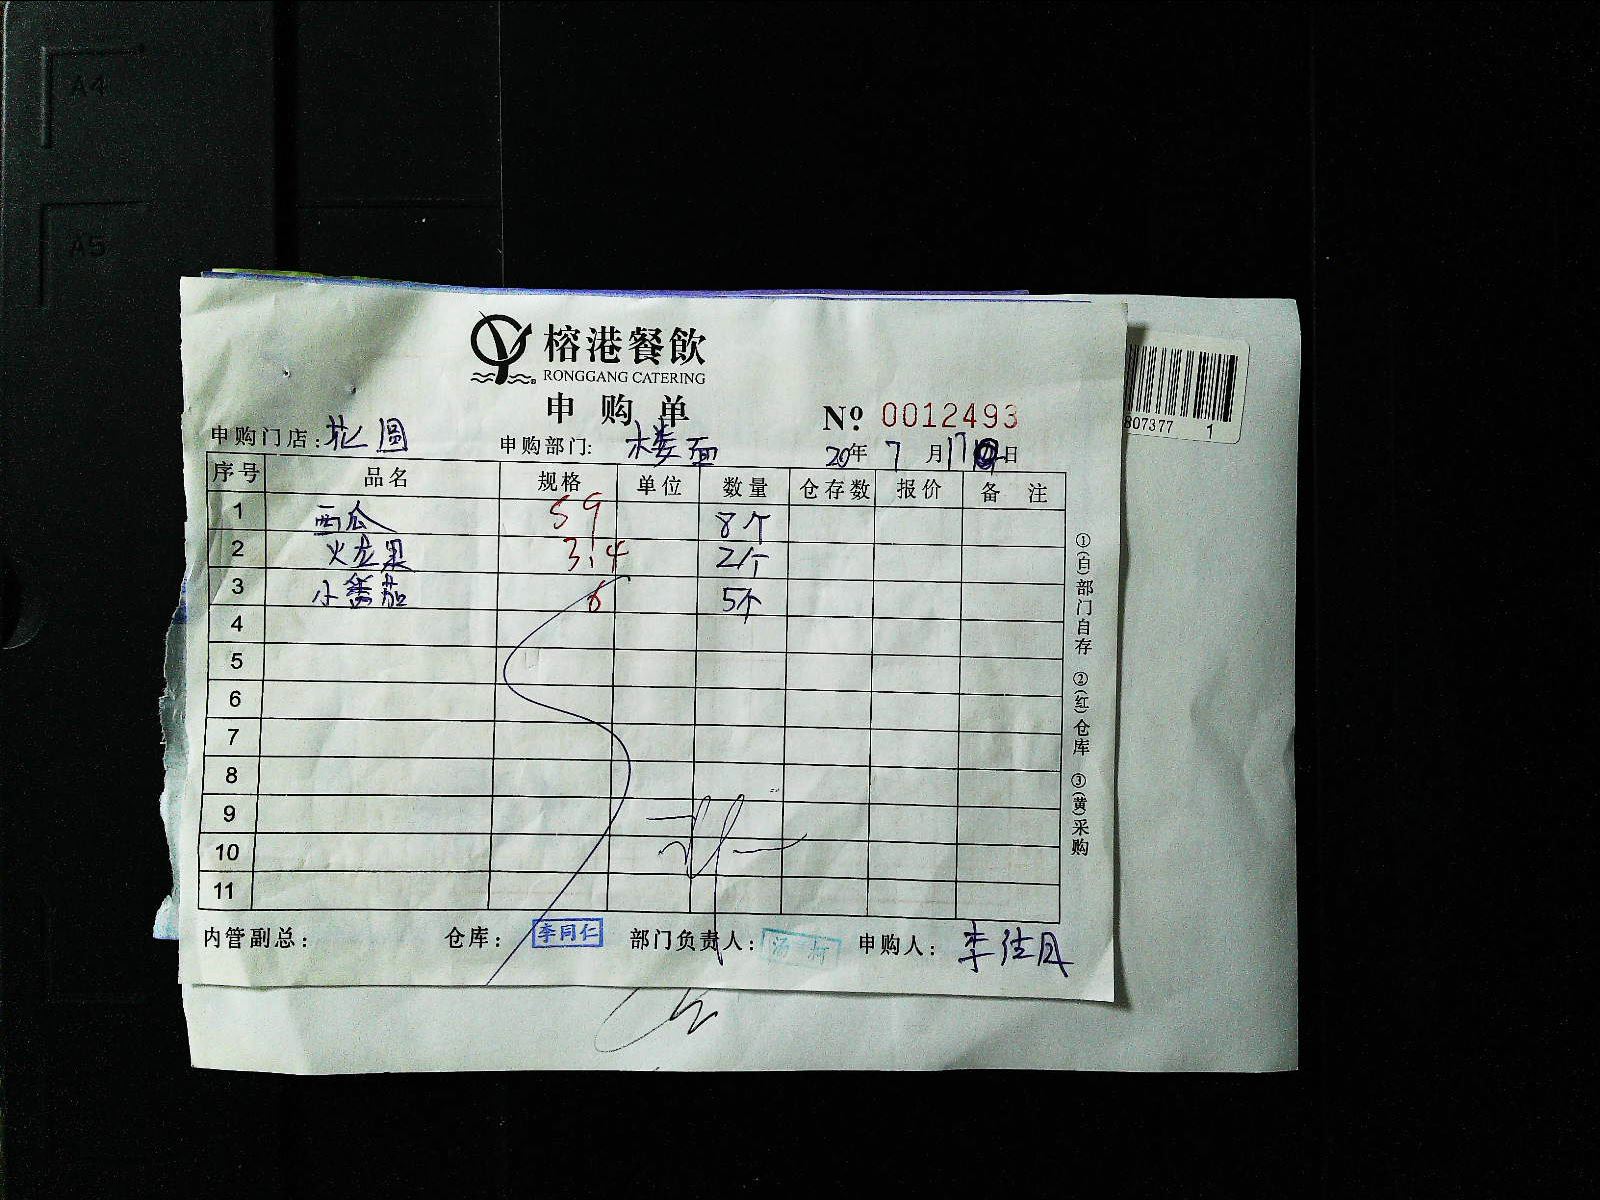 A4
A5
榕港餐飲
RONGGANG CATERING
申购单
№ 0012493
申购门店：花园 申购部门：楼面 20年 7月17日
序号 品名 规格 单位 数量 仓存数 报价 备注
1 西瓜 59 8个
2 火龙果 3.4 2个
3 小番茄 6 5个
4
5
6
7
8
9
10
11
内管副总： 仓库：李同仁 部门负责人： 申购人：李佳月
①(白)部门自存 ②(红)仓库 ③(黄)采购
807377 1